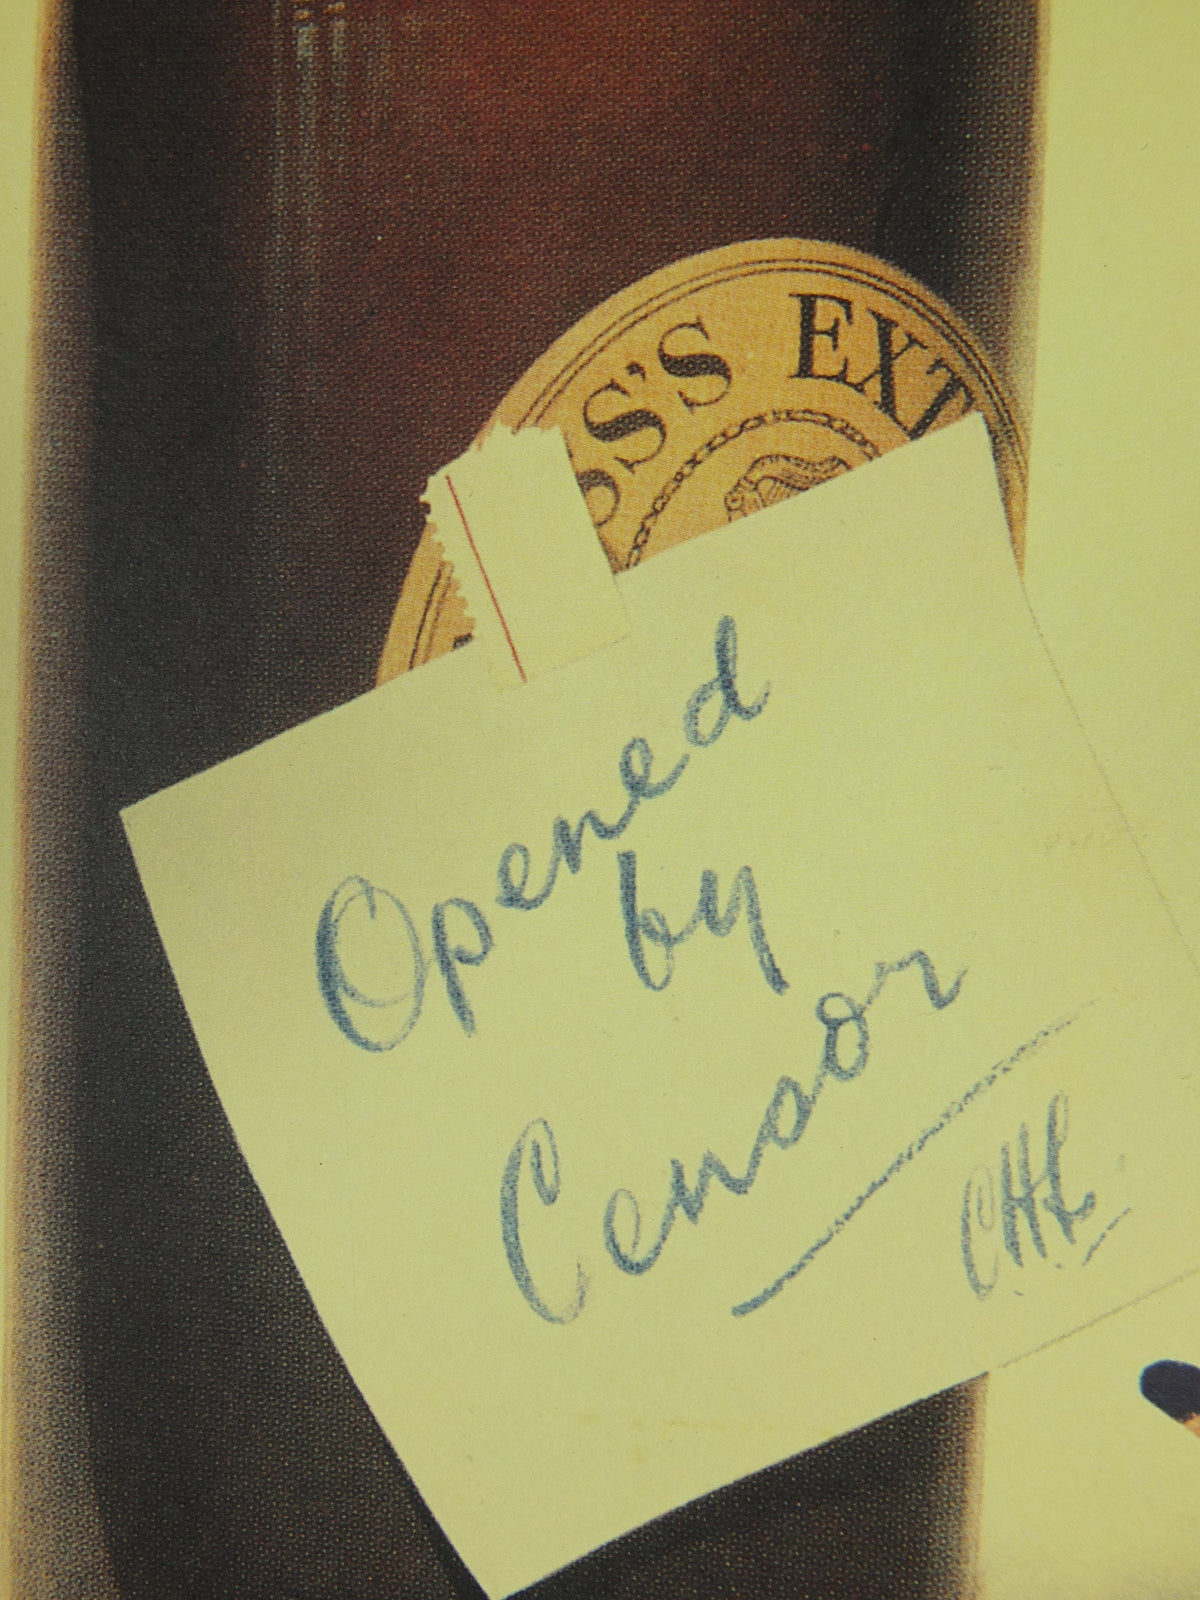 SS'S EXT
Opened
by
Censor
CHL